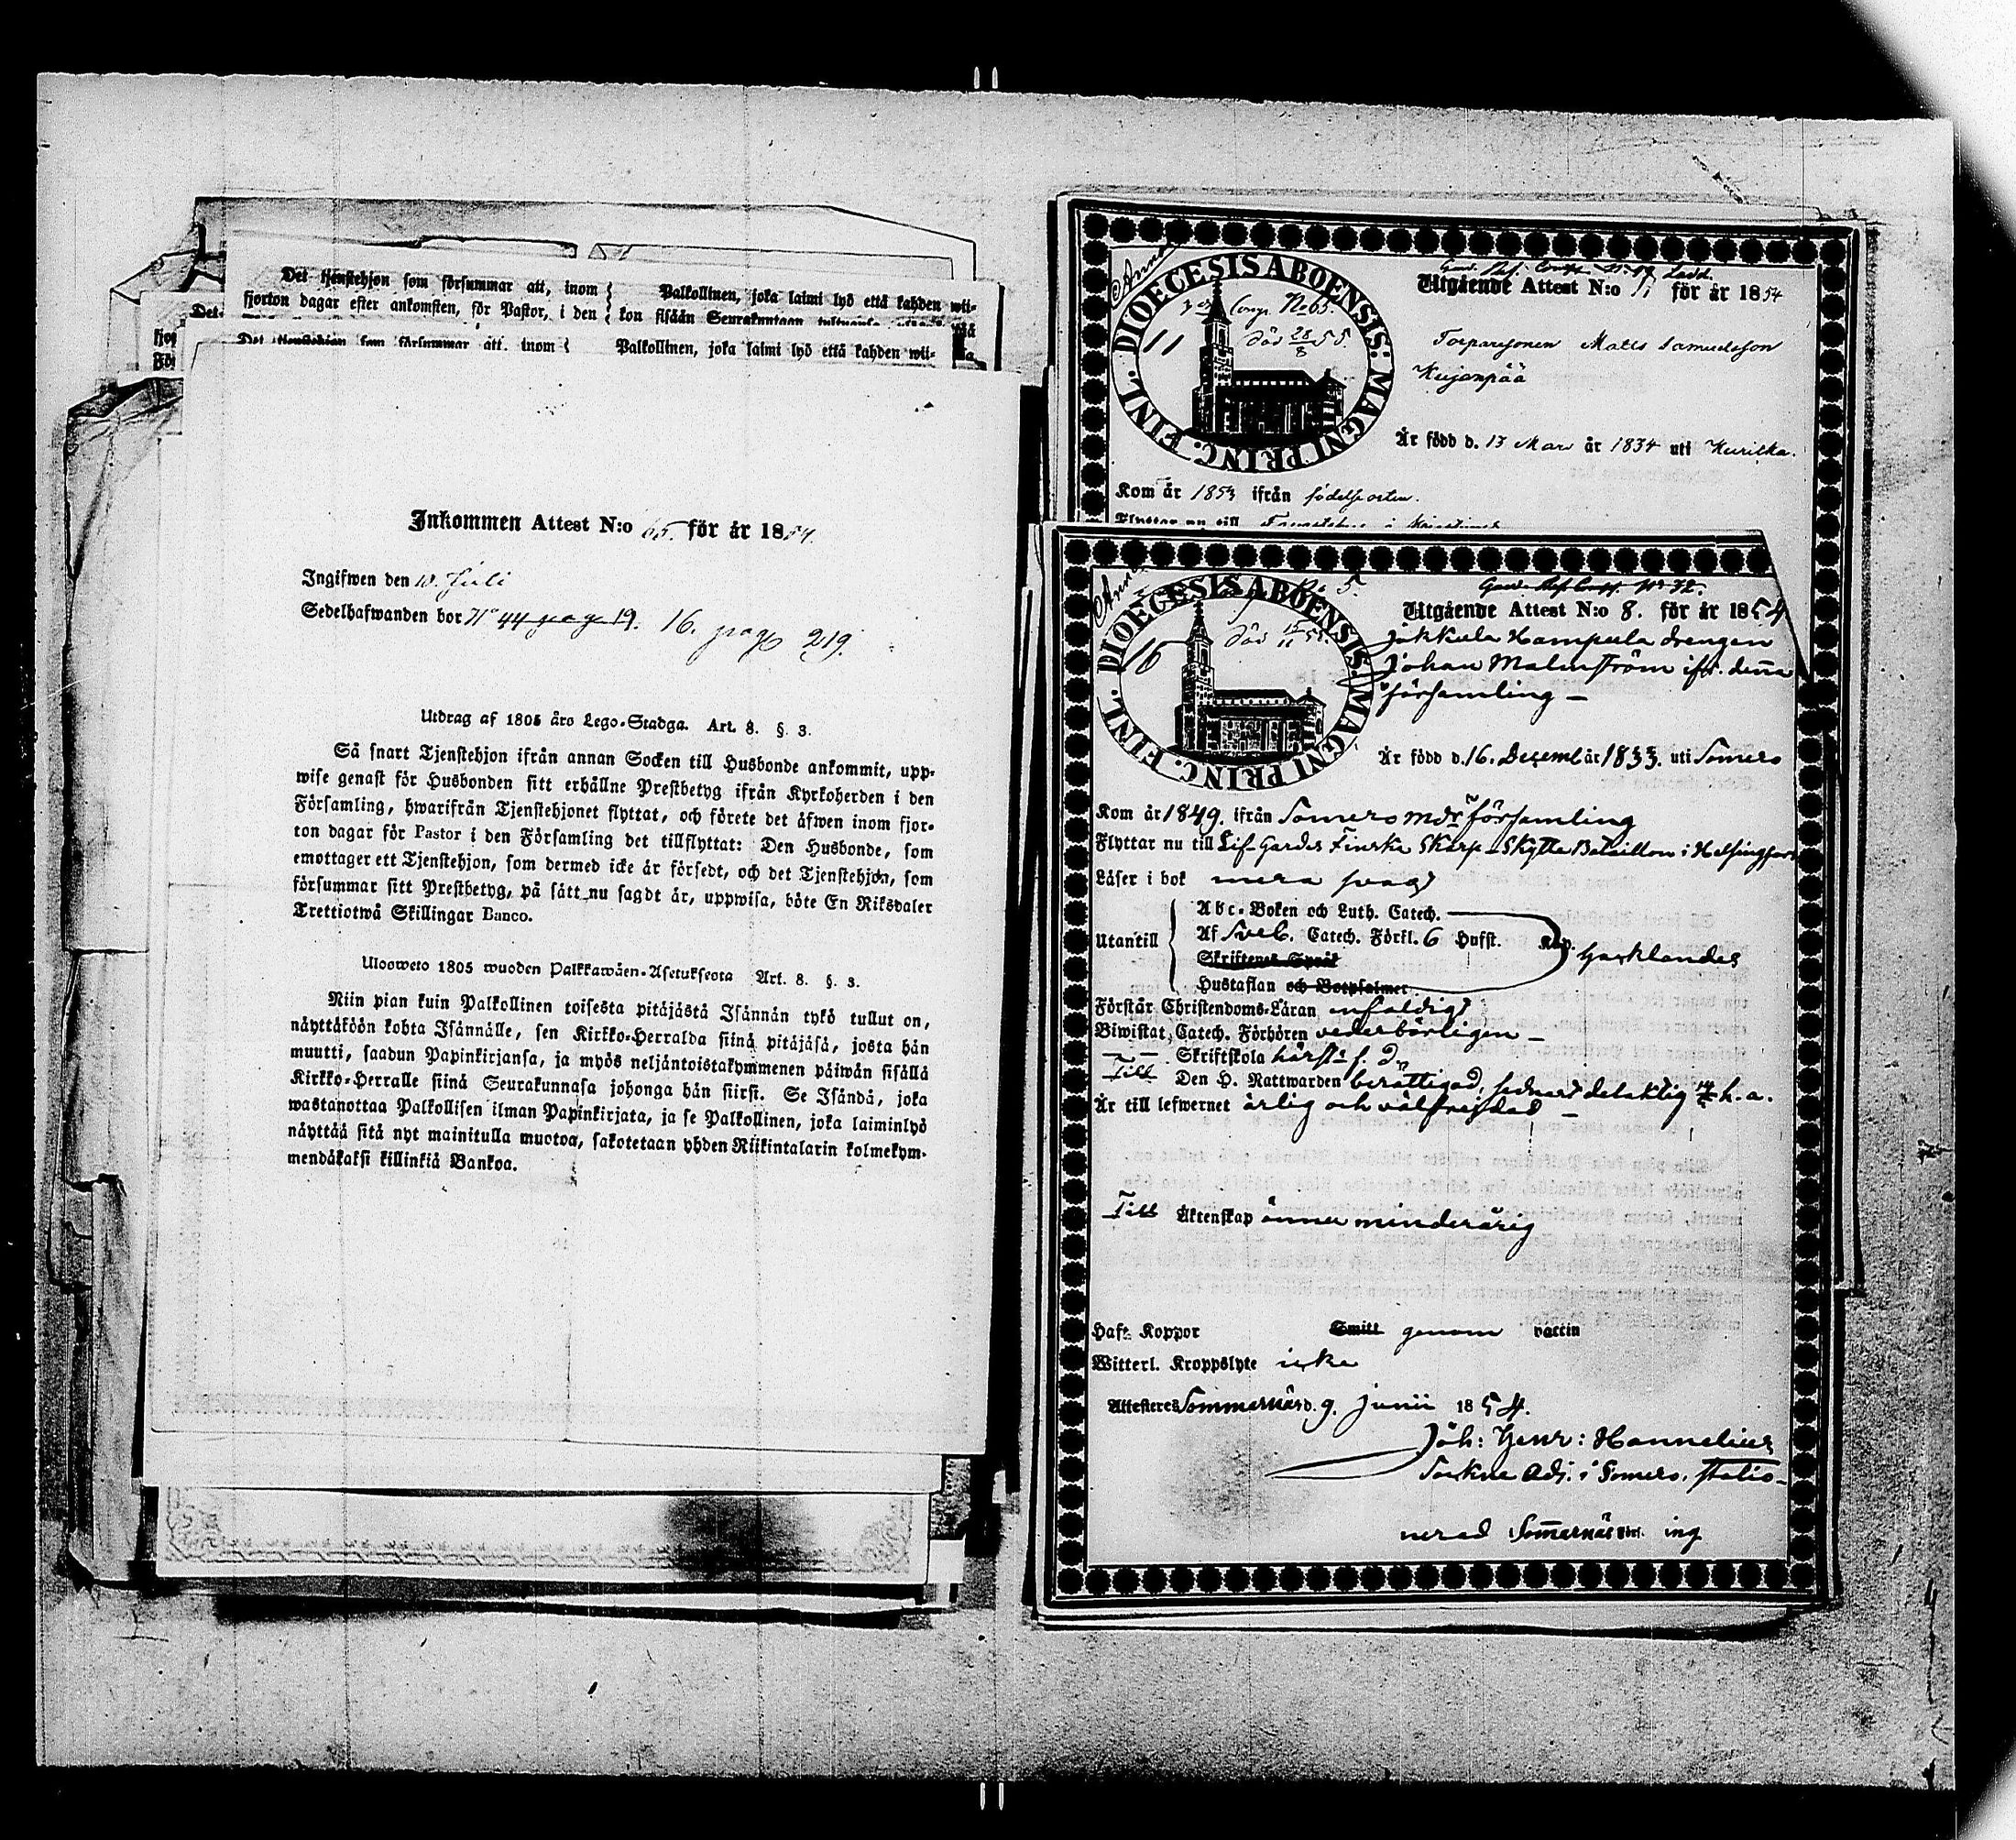 Det tjenstehjon som försummar att, inom
fjorton dagar efter ankomsten, för Pastor, i den
Palkollinen, joka laimi lyö että kahden wii-
kon sisään Seurakuntaan
Det
Det tjenstehjon som försummar att, inom
Palkollinen, joka laimi lyö että kahden wii-
Inkommen Attest N:o 65. för år 1854.
Ingifwen den 10. Juli
Sedelhafwanden bor N° 44 pag 19. 16. pag 219.
Utdrag af 1805 års Lego-Stadga. Art. 8. §. 3.
Så snart Tjenstehjon ifrån annan Socken till Husbonde ankommit, upp-
wise genast för Husbonden sitt erhållne Prestbetyg ifrån Kyrkoherden i den
Församling, hwarifrån Tjenstehjonet flyttat, och förete det äfwen inom fjor-
ton dagar för Pastor i den Församling det tillflyttat: Den Husbonde, som
emottager ett Tjenstehjon, som dermed icke är försedt, och det Tjenstehjon, som
försummar sitt Prestbetyg, på sätt nu sagdt är, uppwisa, böte En Riksdaler
Trettiotwå Skillingar Banco.
Uloosweto 1805 wuoden Palkkawäen-Asetuksesta Art. 8. §. 3.
Niin pian kuin Palkollinen toisesta pitäjästä Isännän tykö tullut on,
näyttäköön kohta Isännälle, sen Kirkko-Herralda siinä pitäjäsä, josta hän
muutti, saadun Papinkirjansa, ja myös neljäntoistakymmenen päiwän sisällä
Kirkko-Herralle siinä Seurakunnasa johonga hän siirsi. Se Isändä, joka
wastanottaa Palkollisen ilman Papinkirjata, ja se Palkollinen, joka laiminlyö
näyttää sitä nyt mainitulla muotoa, sakotetaan yhden Riikintalarin kolmekym-
mendäkaksi killinkiä Bankoa.
DIOECESIS ABOENSIS: MAGNI PRINC. FINL.
Comp. No 65.
11
död 28/8 55.
Utgående Attest N:o 11 för år 1854
Torparesonen Matts Samuelsson
Kujanpää
Är född d. 13 Mars år 1834 uti Kurikka.
Kom år 1853 ifrån födelseorten.
Flyttar nu till
DIOECESIS ABOENSIS: MAGNI PRINC. FINL.
No 5.
16
död 15/11 55.
Utgående Attest N:o 8. för år 1854
Jokkula Hampula drengen
Johan Malmström ifr. denna
församling –
Är född d. 16. Decemb år 1833. uti Somero
Kom år 1849. ifrån Somero mdr församling
Flyttar nu till Lif-Gardes Finska Skarp-Skytte Bataillon i Helsingfors
Läser i bok mera svagt
Abc-Boken och Luth. Catech.
Utantill Af Sveb. Catech. Förkl. 6 Hufst.
Skriftenes Språk
Hustaflan och Botpsalmer
Förstår Christendoms-Läran enfaldigt
Biwistat Catech. Förhören vederbörligen –
Skriftskola
Till Den H. Nattwarden berättigad, sednast delaktig h. a.
Är till lefwernet ärlig och välfrejdad –
Till Äktenskap ännu minderårig
Haft Koppor Smitt genom vaccin
Witterl. Kroppslyte icke
Attesteres Sommernäs d. 9. Junii 1854.
Joh: Henr: Hannelius
Sockne Adj. i Somero, statio-
nerad i Somernäs förs. ing